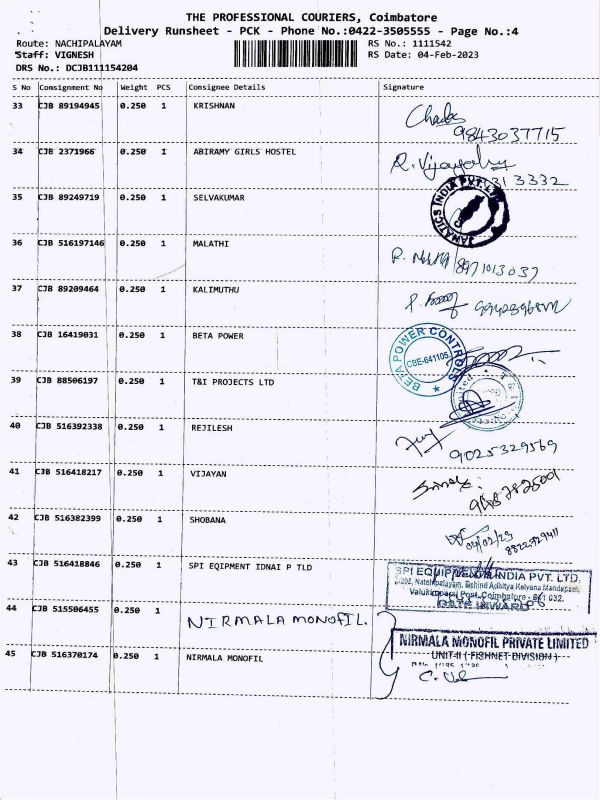 THE PROFESSIONAL COURIERS, Coimbatore
Delivery Runsheet - PCK - Phone No.:0422-3505555 - Page No.:4
Route: NACHIPALAYAM RS No.: 1111542
Staff: VIGNESH RS Date: 04-Feb-2023
DRS No.: DCJB111154204
S No Consignment No Weight PCS Consignee Details Signature
33 CJB 89194945 0.250 1 KRISHNAN
9843037715
34 CJB 2371966 0.250 1 ABIRAMY GIRLS HOSTEL
R. 313332
35 CJB 89249719 0.250 1 SELVAKUMAR
JANATICS INDIA PVT. LTD
36 CJB 516197146 0.250 1 MALATHI
37 CJB 89209464 0.250 1 KALIMUTHU
38 CJB 16419031 0.250 1 BETA POWER
BETA POWER CONTROLS
CBE-641105
39 CJB 88506197 0.250 1 T&I PROJECTS LTD
40 CJB 516392338 0.250 1 REJILESH
9025329569
41 CJB 516418217 0.250 1 VIJAYAN
42 CJB 516382399 0.250 1 SHOBANA
04/02/23
43 CJB 516418846 0.250 1 SPI EQIPMENT IDNAI P TLD
SPI INDIA PVT. LTD.
Natchipalayam, Behind Adhitya Kalyana Mandapam,
Post, Coimbatore - 641 032.
44 CJB 515506455 0.250 1 NIRMALA MONOFIL.
45 CJB 516370174 0.250 1 NIRMALA MONOFIL
NIRMALA MONOFIL PRIVATE LIMITED
UNIT-II (-FISHNET-DIVISION-)